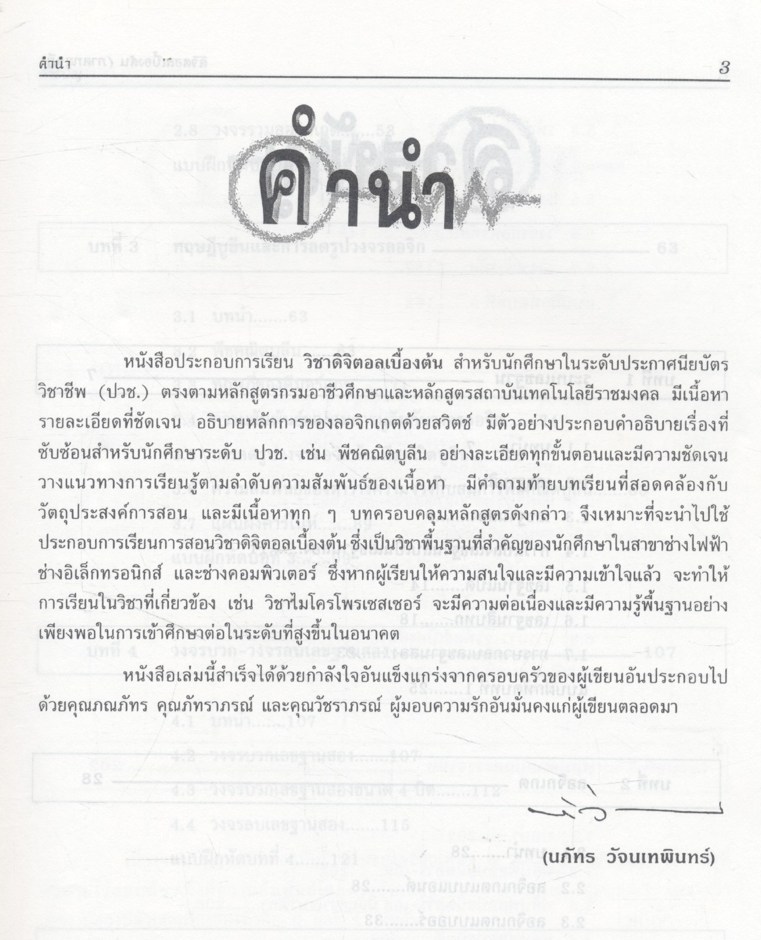 คำนำ
3
คำนำ
หนังสือประกอบการเรียน วิชาดิจิตอลเบื้องต้น สำหรับนักศึกษาในระดับประกาศนียบัตร
วิชาชีพ (ปวช.) ตรงตามหลักสูตรกรมอาชีวศึกษาและหลักสูตรสถาบันเทคโนโลยีราชมงคล มีเนื้อหา
รายละเอียดที่ชัดเจน อธิบายหลักการของลอจิกเกตด้วยสวิตช์ มีตัวอย่างประกอบคำอธิบายเรื่องที่
ซับซ้อนสำหรับนักศึกษาระดับ ปวช. เช่น พีชคณิตบูลีน อย่างละเอียดทุกขั้นตอนและมีความชัดเจน
วางแนวทางการเรียนรู้ตามลำดับความสัมพันธ์ของเนื้อหา มีคำถามท้ายบทเรียนที่สอดคล้องกับ
วัตถุประสงค์การสอน และมีเนื้อหาทุก ๆ บทครอบคลุมหลักสูตรดังกล่าว จึงเหมาะที่จะนำไปใช้
ประกอบการเรียนการสอนวิชาดิจิตอลเบื้องต้น ซึ่งเป็นวิชาพื้นฐานที่สำคัญของนักศึกษาในสาขาช่างไฟฟ้า
ช่างอิเล็กทรอนิกส์ และช่างคอมพิวเตอร์ ซึ่งหากผู้เรียนให้ความสนใจและมีความเข้าใจแล้ว จะทำให้
การเรียนในวิชาที่เกี่ยวข้อง เช่น วิชาไมโครโพรเซสเซอร์ จะมีความต่อเนื่องและมีความรู้พื้นฐานอย่าง
เพียงพอในการเข้าศึกษาต่อในระดับที่สูงขึ้นในอนาคต
หนังสือเล่มนี้สำเร็จได้ด้วยกำลังใจอันแข็งแกร่งจากครอบครัวของผู้เขียนอันประกอบไป
ด้วยคุณภณภัทร คุณภัทราภรณ์ และคุณวัชราภรณ์ ผู้มอบความรักอันมั่นคงแก่ผู้เขียนตลอดมา
(นภัทร วัจนเทพินทร์)